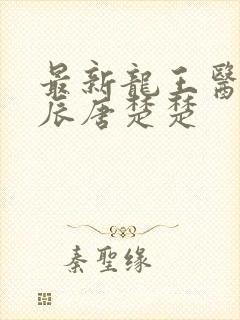 最新龍王醫
辰唐楚楚
秦聖缘